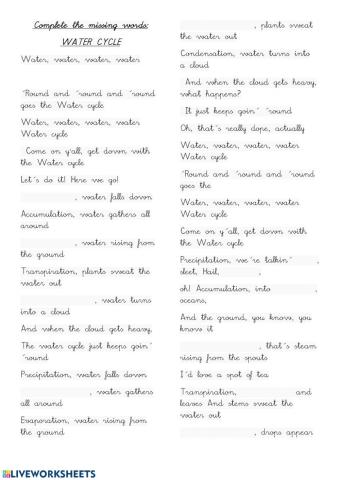 Complete the missing words:
WATER CYCLE
Water, water, water, water
´Round and ´round and ´round
goes the Water cycle
Water, water, water, water
Water cycle
Come on y'all, get down with
the Water cycle
Let´s do it! Here we go!
, water falls down
Accumulation, water gathers all
around
, water rising from
the ground
Transpiration, plants sweat the
water out
, water turns
into a cloud
And when the cloud gets heavy,
The water cycle just keeps goin´
´round
Precipitation, water falls down
, water gathers
all around
Evaporation, water rising from
the ground
, plants sweat
the water out
Condensation, water turns into
a cloud
And when the cloud gets heavy,
what happens?
It just keeps goin´ ´round
Oh, that´s really dope, actually
Water, water, water, water
Water cycle
´Round and ´round and ´round
goes the
Water, water, water, water
Water cycle
Come on y´all, get down with
the Water cycle
Precipitation, we´re talkin´ ,
sleet, Hail, ,
oh! Accumulation, into ,
oceans,
And the ground, you know, you
know it
, that´s steam
rising from the spouts
I´d love a spot of tea
Transpiration, and
leaves And stems sweat the
water out
, drops appear
LIVEWORKSHEETS